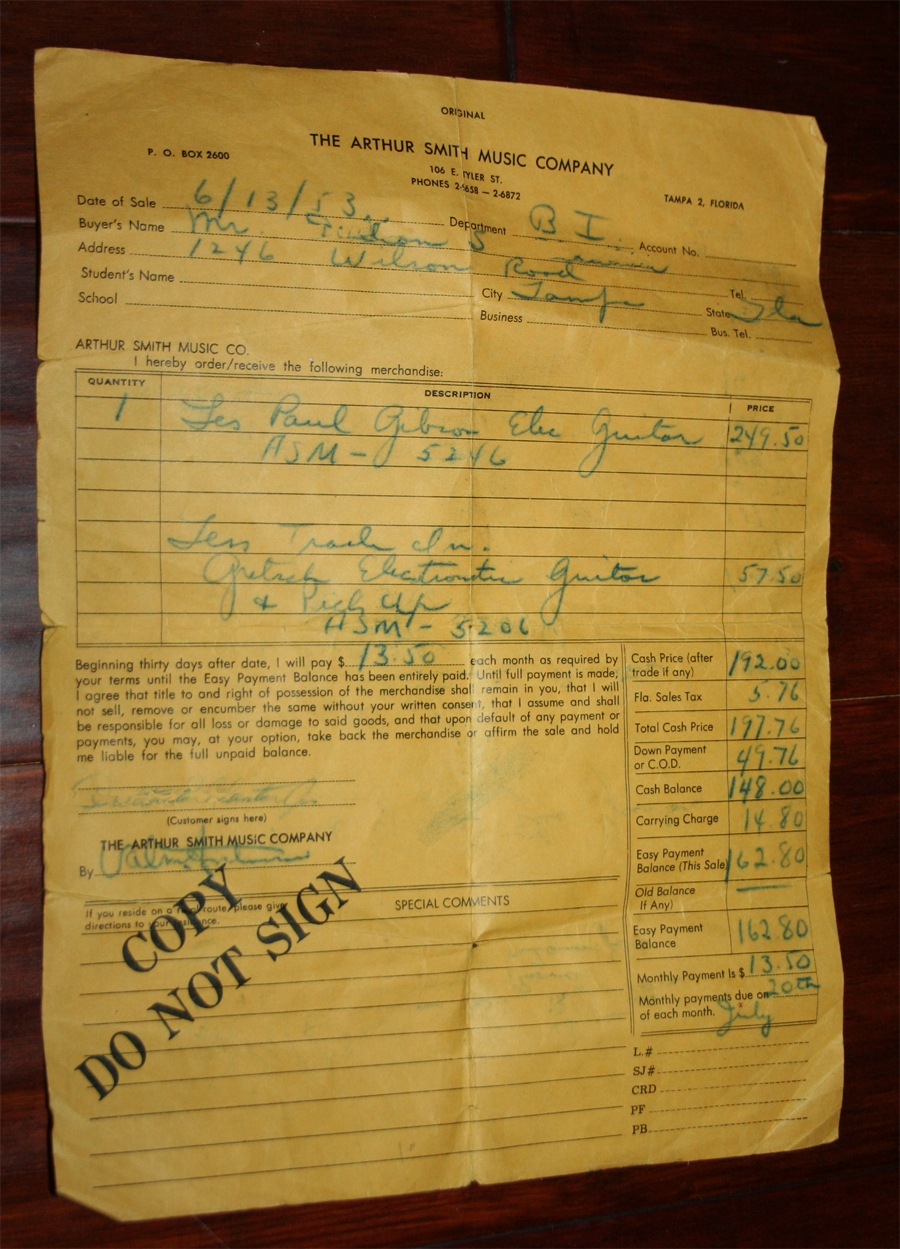 ORIGINAL
THE ARTHUR SMITH MUSIC COMPANY
P. O. BOX 2600
106 E. TYLER ST.
PHONES 2-5658 — 2-6872
TAMPA 2, FLORIDA
Date of Sale 6/13/53 Department B I. Account No.
Buyer's Name Mr.
Address 1246 Wilson Road
Student's Name City Tampa Tel.
School State Fla
Business Bus. Tel.
ARTHUR SMITH MUSIC CO.
I hereby order/receive the following merchandise:
QUANTITY DESCRIPTION PRICE
1 Les Paul Gibson Elec Guitar 249.50
ASM - 5246
Less Trade In.
Gretsch Guitar 57.50
& Pick Up
ASM - 5206
Beginning thirty days after date, I will pay $ 13.50 each month as required by
your terms until the Easy Payment Balance has been entirely paid. Until full payment is made,
I agree that title to and right of possession of the merchandise shall remain in you, that I will
not sell, remove or encumber the same without your written consent, that I assume and shall
be responsible for all loss or damage to said goods, and that upon default of any payment or
payments, you may, at your option, take back the merchandise or affirm the sale and hold
me liable for the full unpaid balance.
(Customer signs here)
THE ARTHUR SMITH MUSIC COMPANY
By
Cash Price (after
trade if any) 192.00
Fla. Sales Tax 5.76
Total Cash Price 197.76
Down Payment
or C.O.D. 49.76
Cash Balance 148.00
Carrying Charge 14.80
Easy Payment
Balance (This Sale) 162.80
Old Balance
If Any)
Easy Payment
Balance 162.80
Monthly Payment Is $ 13.50
Monthly payments due on 20th
of each month. July
If you reside on a rural route, please give
directions to your residence.
SPECIAL COMMENTS
COPY
DO NOT SIGN
L.#
SJ#
CRD
PF
PB